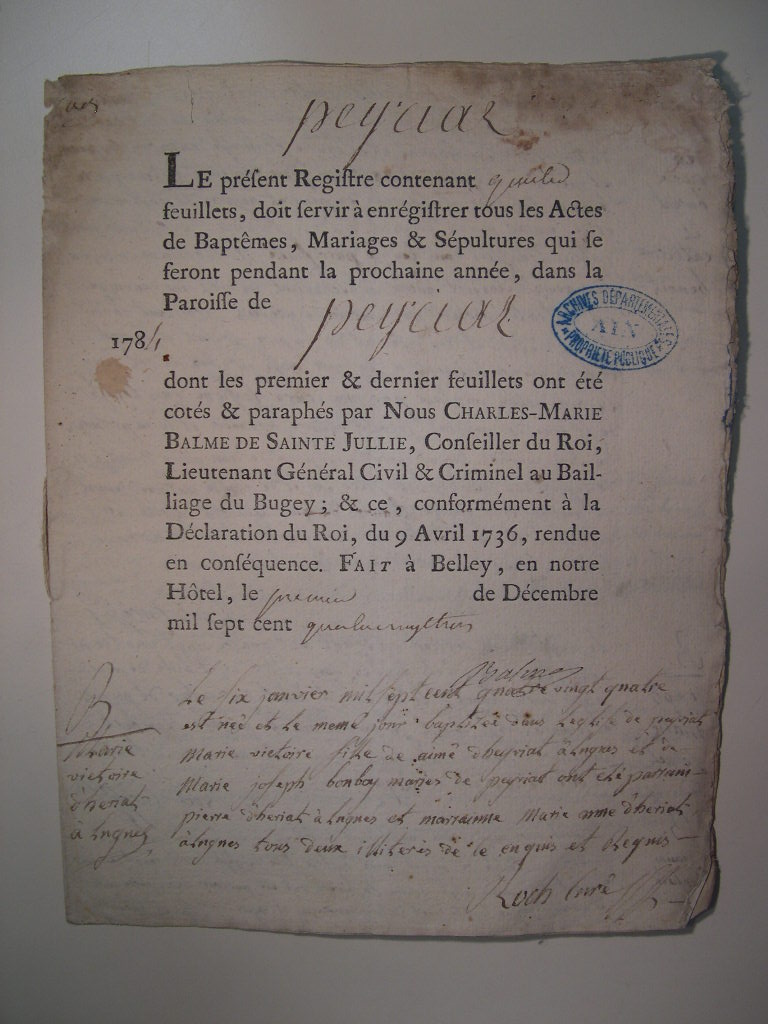 peyriat
LE préſent Regiſtre contenant
feuillets, doit ſervir à enrégiſtrer tous les Actes
de Baptêmes, Mariages & Sépultures qui ſe
feront pendant la prochaine année, dans la
Paroiſſe de peyriat
ARCHIVES DÉPARTEMENTALES
AIN
PROPRIÉTÉ PUBLIQUE
1784
dont les premier & dernier feuillets ont été
cotés & paraphés par Nous CHARLES-MARIE
BALME DE SAINTE JULLIE, Conſeiller du Roi,
Lieutenant Général Civil & Criminel au Bail-
liage du Bugey; & ce, conformément à la
Déclaration du Roi, du 9 Avril 1736, rendue
en conſéquence. FAIT à Belley, en notre
Hôtel, le premier de Décembre
mil ſept cent quatrevingttrois
Balme
B
Marie
victoire
d'heriat
à lngnes
Le six janvier mil sept cent quatre vingt quatre
est née et le meme jour baptisée dans leglise de peyriat
Marie victoire fille de aimé dheyriat àlngnes et de
Marie joseph bonboy mariés de peyriat ont été parrain
pierre dheriat àlngnes et marrainne Marie anne d'heriat
àlngnes tous deux illiterés de ce enquis et Requis
Roch Curé